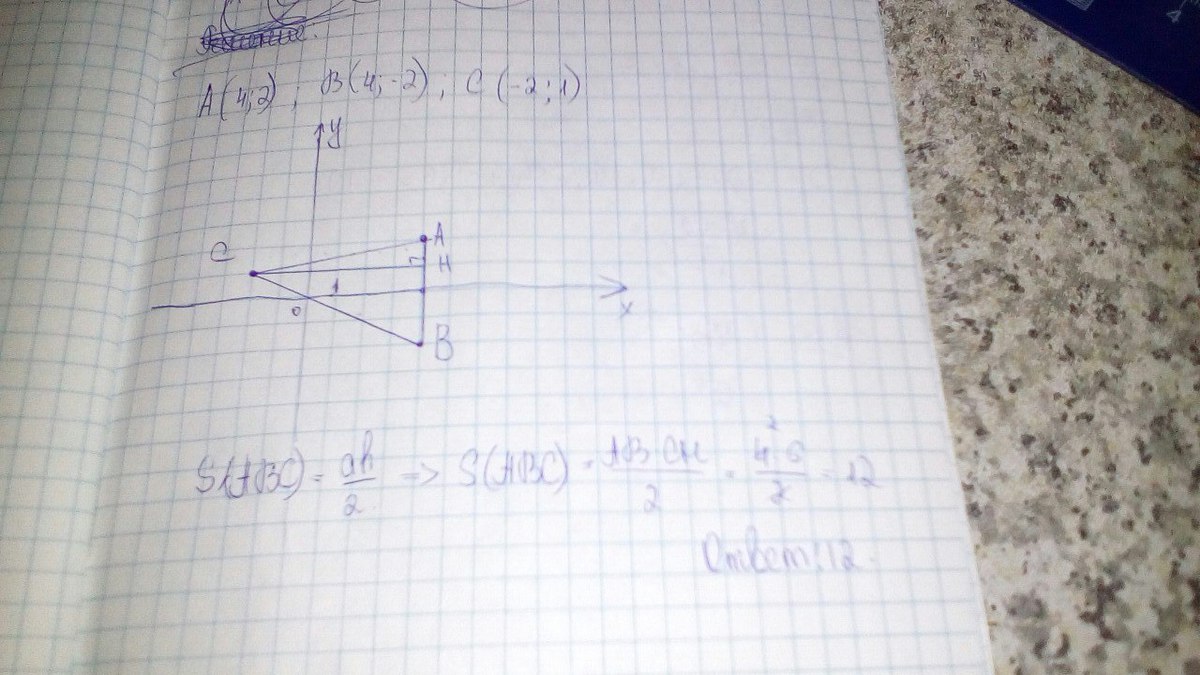 A(4;2) ; B(4;-2) ; C(-2;1)
y
A
C
H
1
0
x
B
S(ABC) = ah/2 => S(ABC) = AB·CH/2 = 4²·6/2 = 12
Ответ: 12.